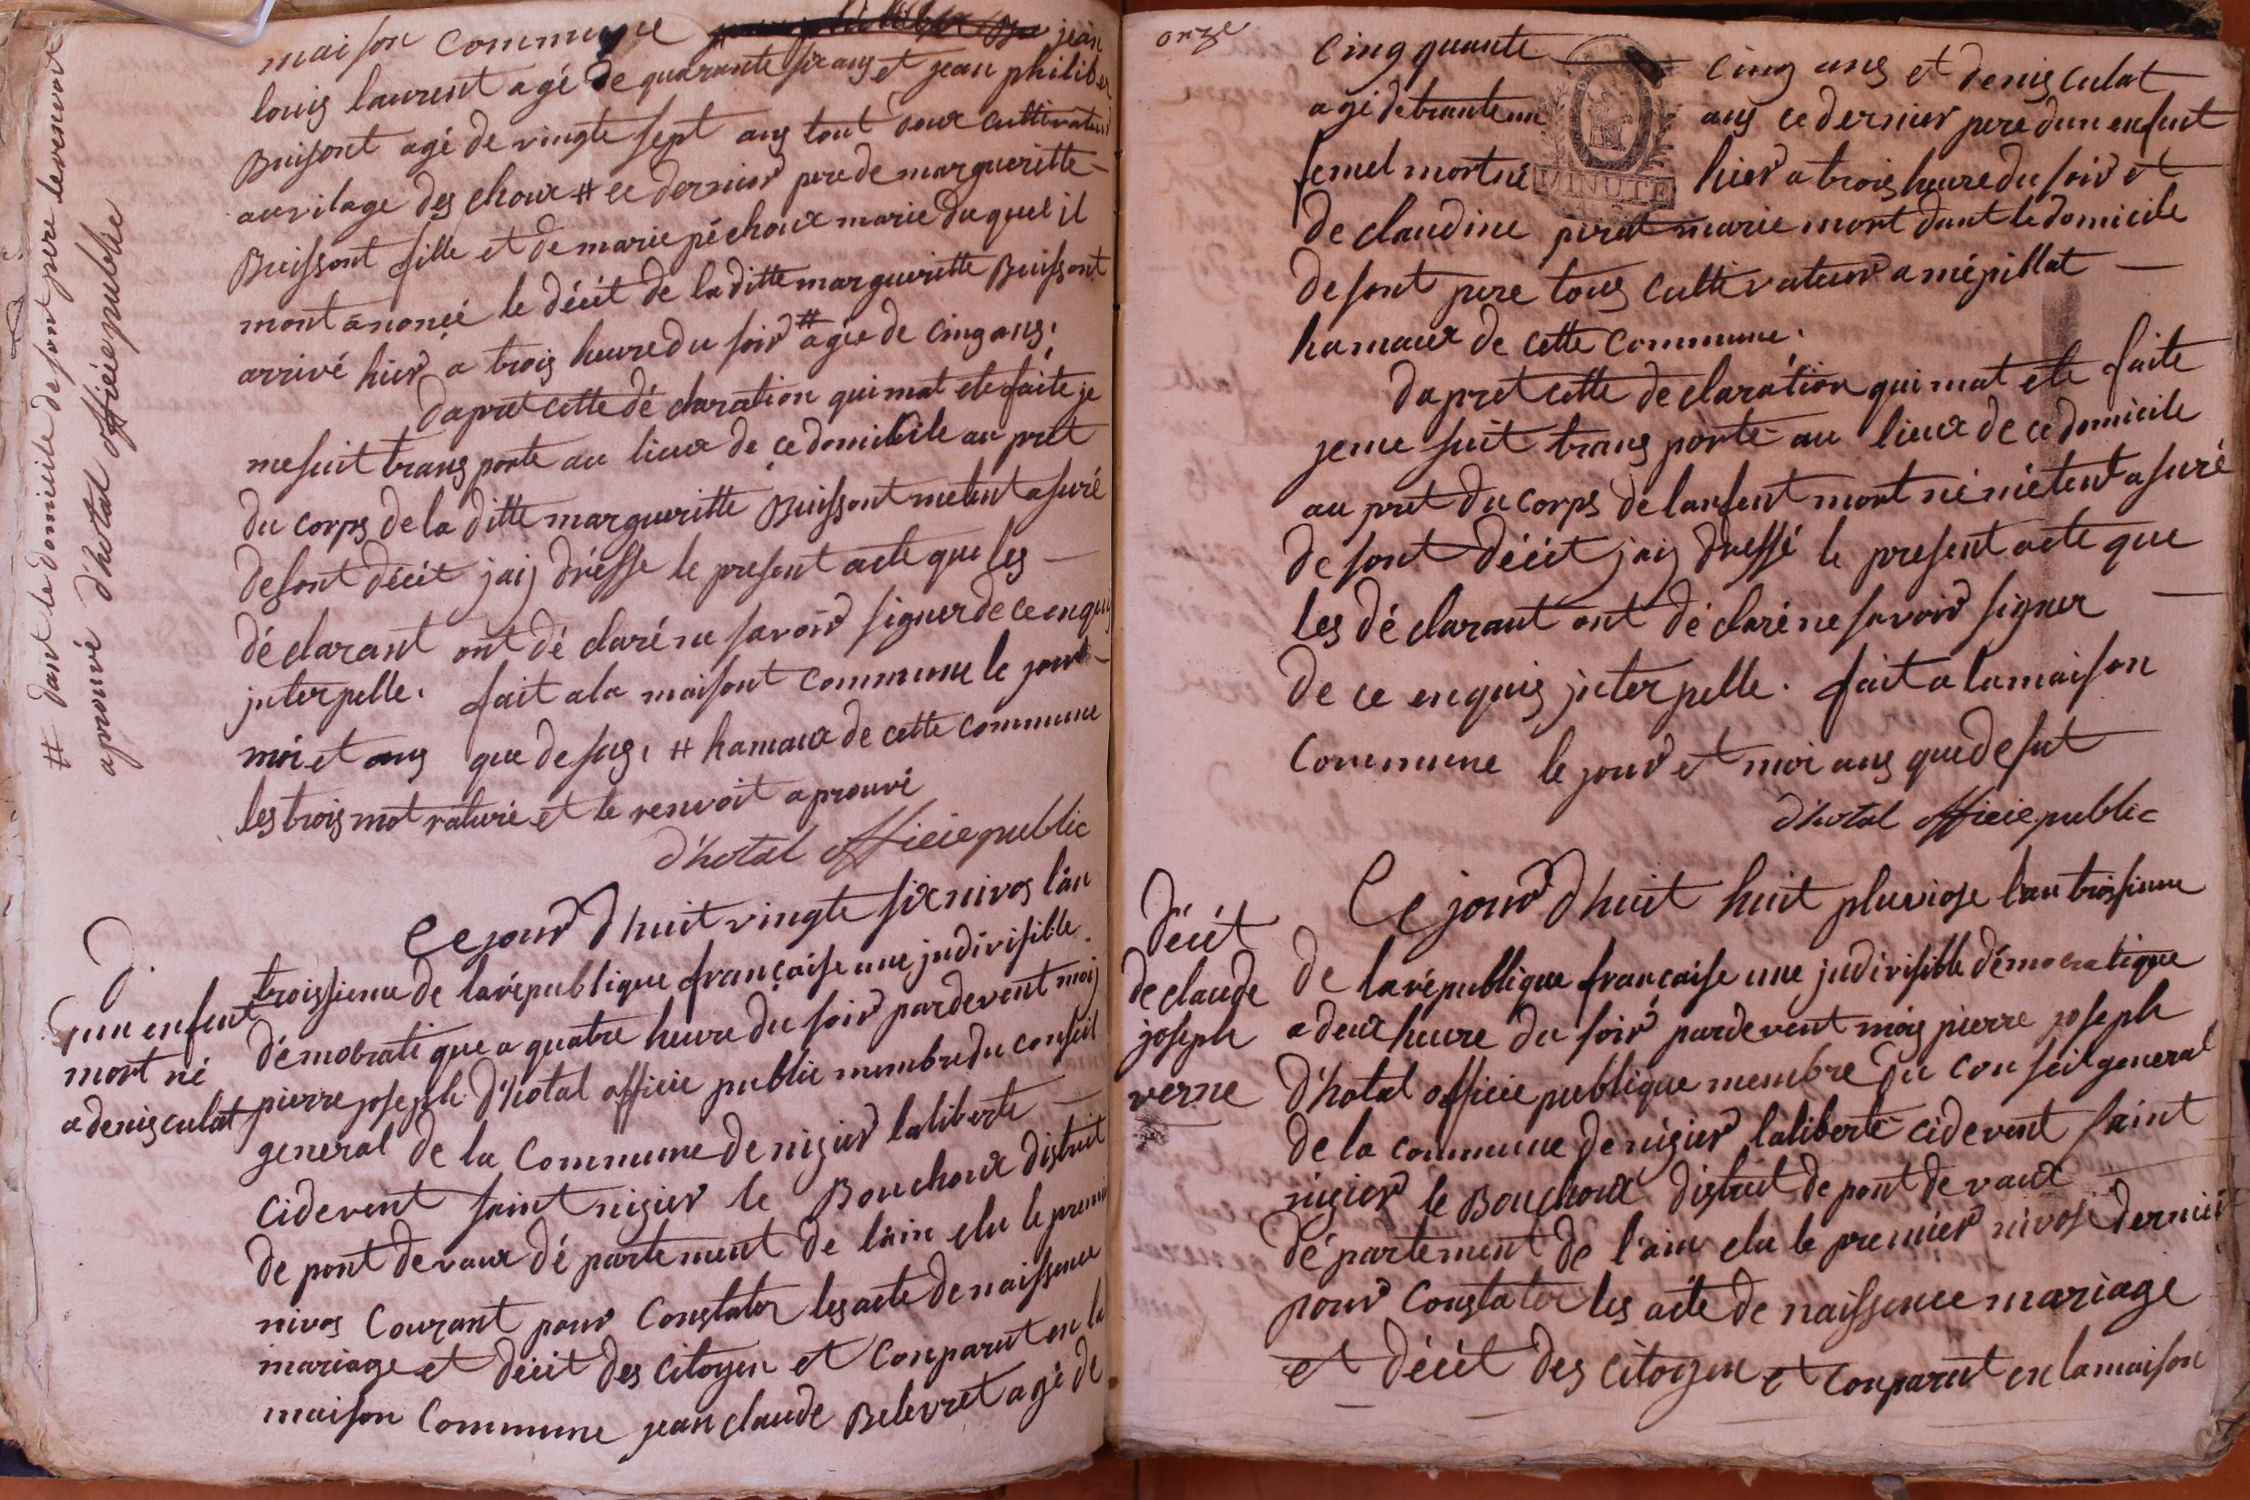 maison commune jean
louis laurent agé de quarante six ans et jean philiber
Buisont agé de vingte sept ans tout deux cultivateur
au vilage des choux # ce dernier pere de margueritte
Buissont fille et de marie péchoux marie du quel il
mont ânoncé le décit de la ditte margueritte Buissont
arrivé hier a trois heure du soir # agée de cinq ans.
dapret cette dé claration qui mat ete faite je
me suit trans porte au lieux de ce domicile au pret
du corps de la ditte margueritte Buissont metent asuré
de sont décit jaij dresse le present acte que les
déclarant ont dé claré ne savoir signer de ce enquij
jnterpelle. fait a la maisont commune le jour
moi et ans que de sus. # hamaux de cette commune
les trois mot raturé et le renvoit aprouvé
d'hotal officié public
# dant le domicile de sont pere le renvoit
aprouvé d'hotal officié public
D
jun enfent
mort né
a denis culat
Ce jour d huit vingte six nivos l'an
troissieme de la république française une jndivisible
démocrati que a quatre heure du soir pardevent moij
pierre joseph d'hotal officié public membre du conseil
general de la commune de nizier laliberté
cidevent saint nizier le Bouchoux district
de pont devaux dé partement de l'ain elu le premier
nivos courant pour constater les acte de naissence
mariage et décit des citoyen et conparut en la
maison commune jean claude Belevret agé de
onze
cinq quante cinq ans et denis culat
agé de trante un ans ce dernier pere dun enfent
femel mort né hier a trois heure du soir et
MINUTE
de claudine perat marie mort dant le domicile
de sont pere tous cultivateur a mépillat
hamaux de cette commune.
dapret cette declaration qui mat ete faite
je me suit trans porte au lieux de ce domicile
au pret du corps de lanfent mort né métent asuré
de sont décit jaij dressé le present acte que
les dé clarant ont dé claré ne savoir signer
de ce enquis jnterpelle. fait a la maison
commune le jour et moi ans que de sut
d'hotal officié public
Décit
de claude
joseph
verne
Ce jour d huit huit pluviose l'an troisieme
de la république française une jndivisible démocratique
a deux heure du soir pardevent mois pierre joseph
d'hotal officié publique membre du conseil general
de la commune de nizier laliberté cidevent saint
nizier le Bouchoux district de pont de vaux
dé partement de l'ain elu le premier nivose dernier
pour constater les acte de naissence mariage
et décit des citoyen et conparut en la maison